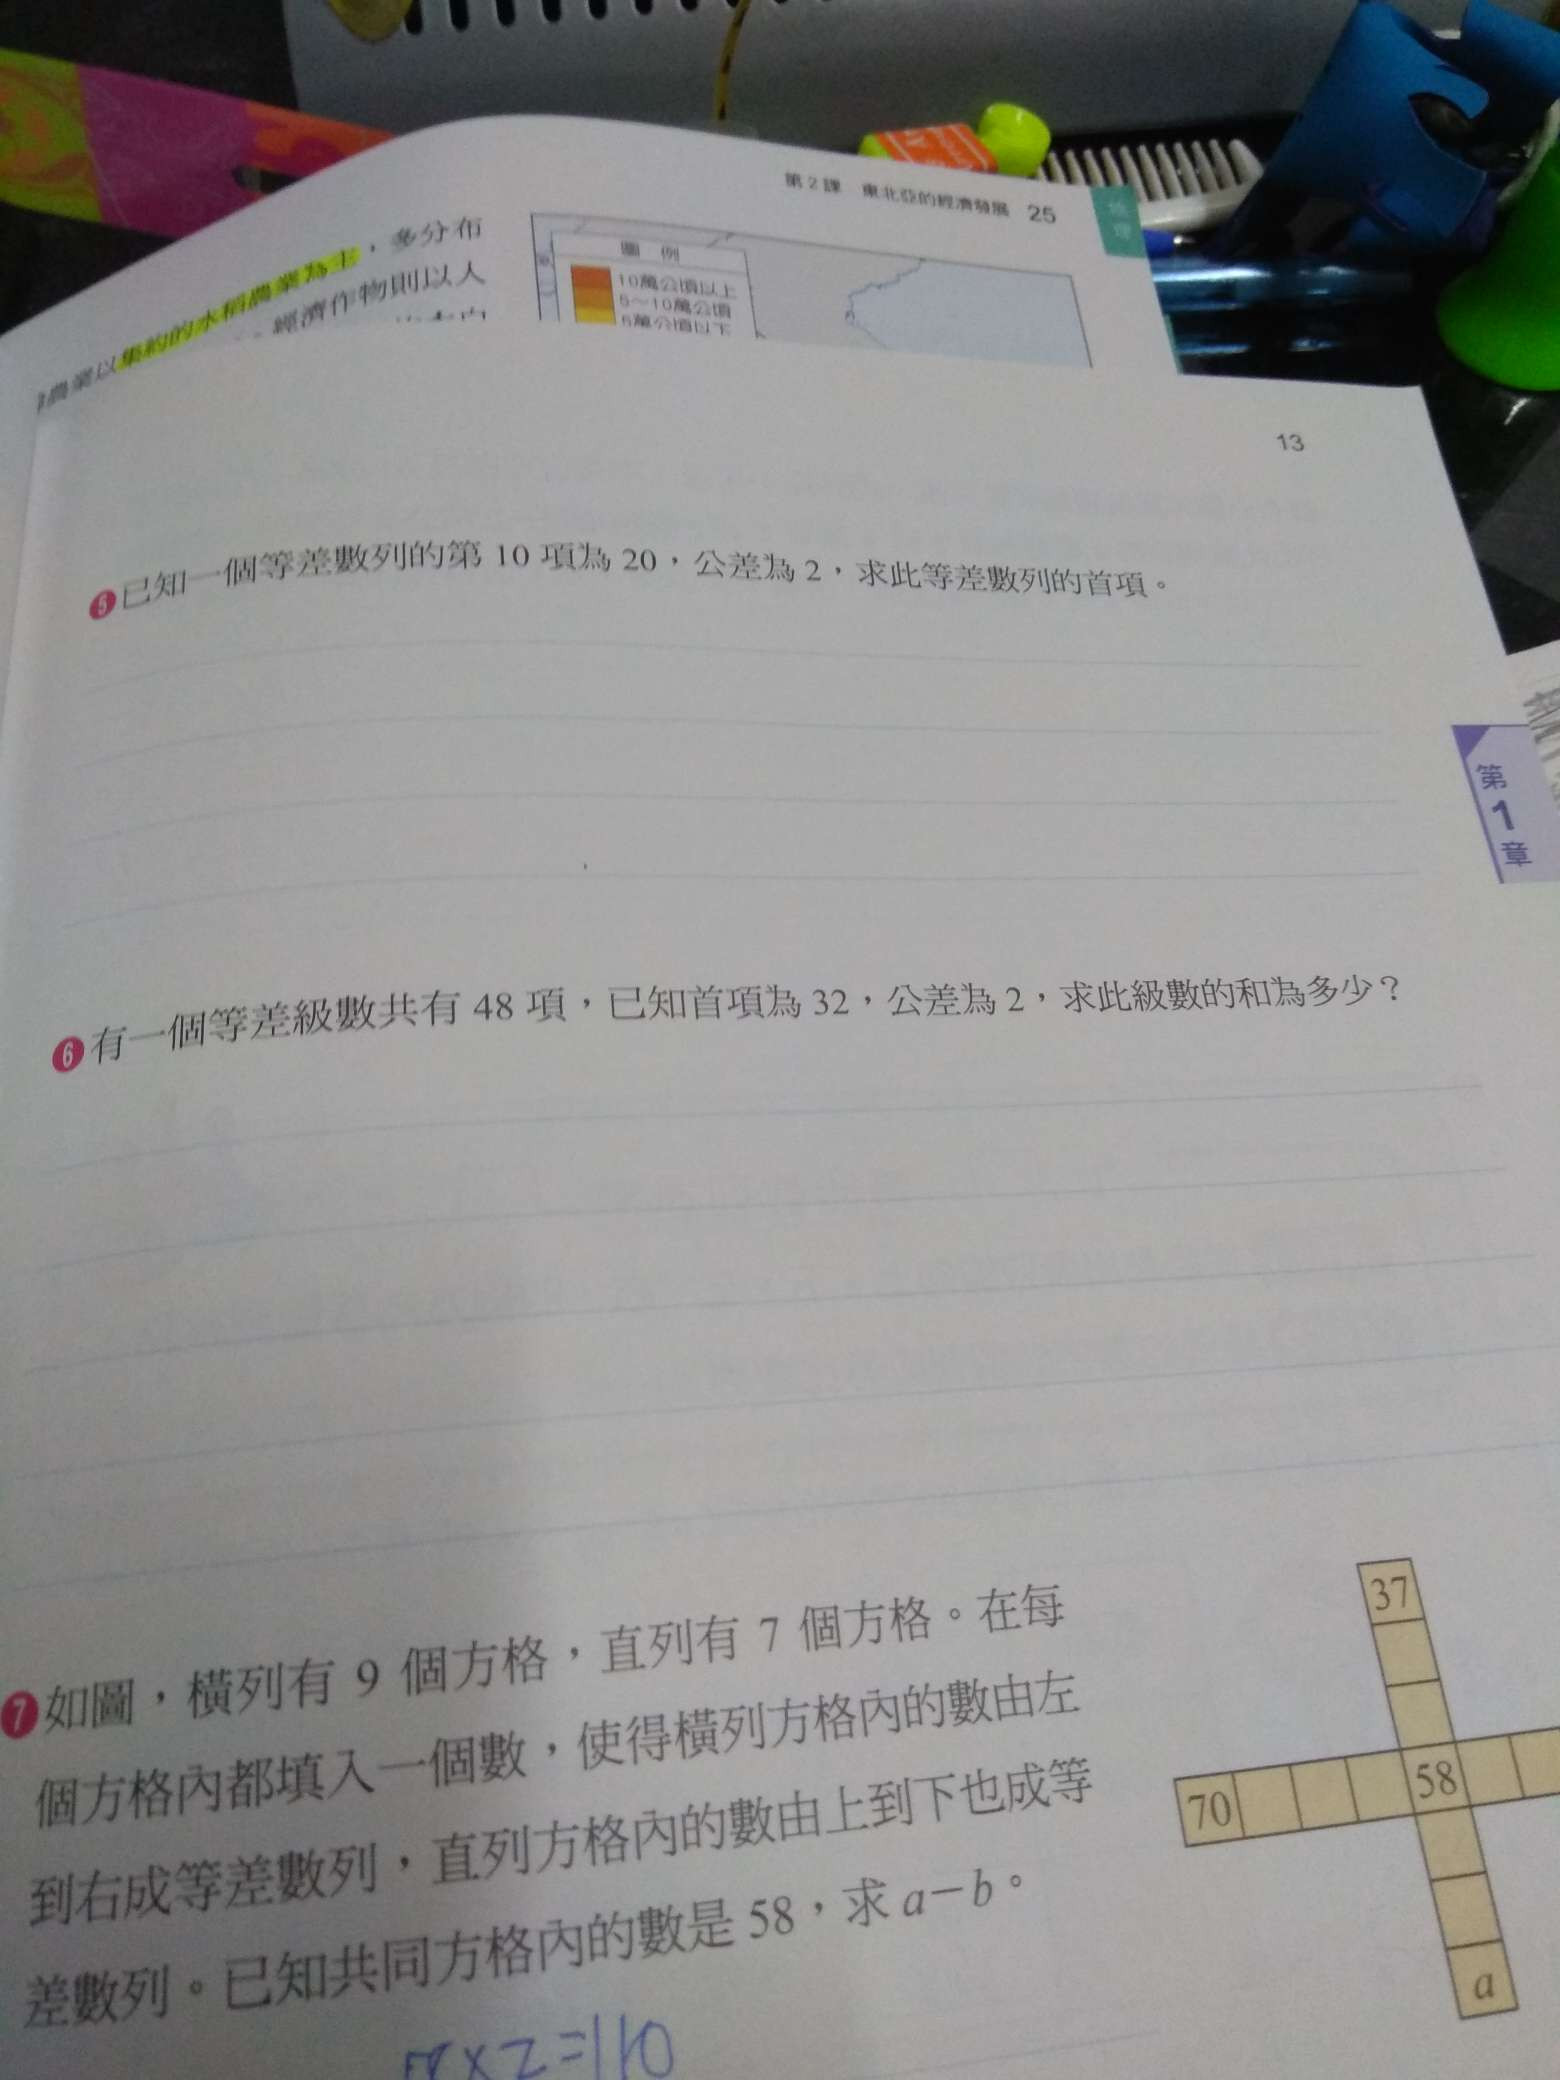 第2課 東北亞的經濟發展 25
農業以集約的水稻農業為主，多分布
經濟作物則以人
圖 例
10萬公頃以上
5～10萬公頃
5萬公頃以下
13
❺已知一個等差數列的第 10 項為 20，公差為 2，求此等差數列的首項。
第
1
章
❻有一個等差級數共有 48 項，已知首項為 32，公差為 2，求此級數的和為多少？
❼如圖，橫列有 9 個方格，直列有 7 個方格。在每
個方格內都填入一個數，使得橫列方格內的數由左
到右成等差數列，直列方格內的數由上到下也成等
差數列。已知共同方格內的數是 58，求 a－b。
37
70
58
a
×2=110